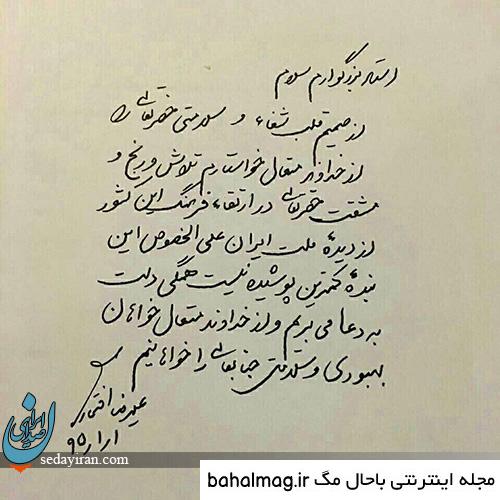 استاد بزرگوارم سلام
از صمیم قلب شفاء و سلامتی حضرتعالی را
از خداوند متعال خواستارم تلاش و رنج و
مشقت حضرتعالی در ارتقاء فرهنگ این کشور
از دیدهٔ ملت ایران علی الخصوص این
بندهٔ کمترین پوشیده نیست همگی دست
به دعا می بریم و از خداوند متعال خواهان
بهبودی و سلامتی جنابعالی را خواهانیم
علیرضا افتخاری
۹۵/۱/۱
صدای ایران
sedayiran.com
مجله اینترنتی باحال مگ bahalmag.ir